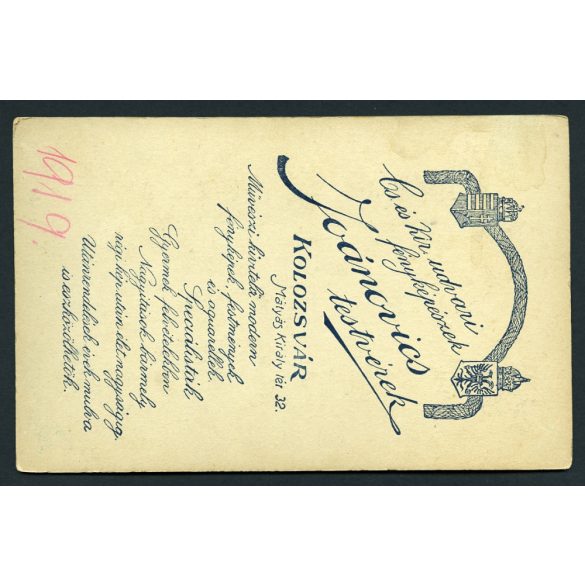 Cs és kir. udvari
fényképészek
Joánovics
testvérek
KOLOZSVÁR
Mátyás Király tér 32.
Müvészi kivitelü modern
fényképek, festmények
és aquarellek.
Specialisták
Gyermek felvételekben
Nagyitások bármely
régi kép után élet nagyságig.
Utánrendelések évek mulva
is eszközölhetők.
1919.